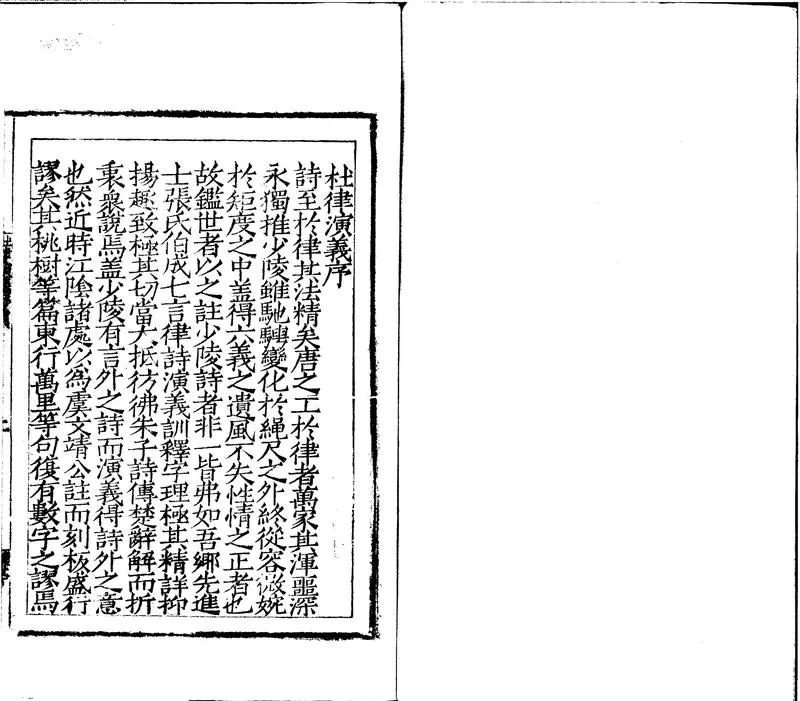 杜律演義序
詩至於律其法精矣唐之工於律者萬家其渾噩深
永獨推少陵雖馳騁變化於繩尺之外終從容微婉
於矩度之中盖得六義之遺風不失性情之正者也
故鑑世者以之註少陵詩者非一皆弗如吾鄉先進
士張氏伯成七言律詩演義訓釋字理極其精詳抑
揚趣致極其切當大抵彷彿朱子詩傳楚辭解而折
衷衆說焉盖少陵有言外之詩而演義得詩外之意
也然近時江陰諸處以為虞文靖公註而刻板盛行
謬矣其桃樹等篇東行萬里等句復有數字之謬焉